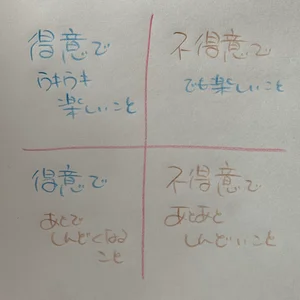 得意で
ウキウキ
楽しいこと
不得意で
でも楽しいこと
得意で
あとで
しんどくなる
こと
不得意で
あとあと
しんどいこと